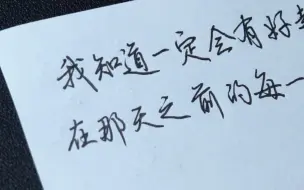 我知道一定会有好
在那天之前的每一